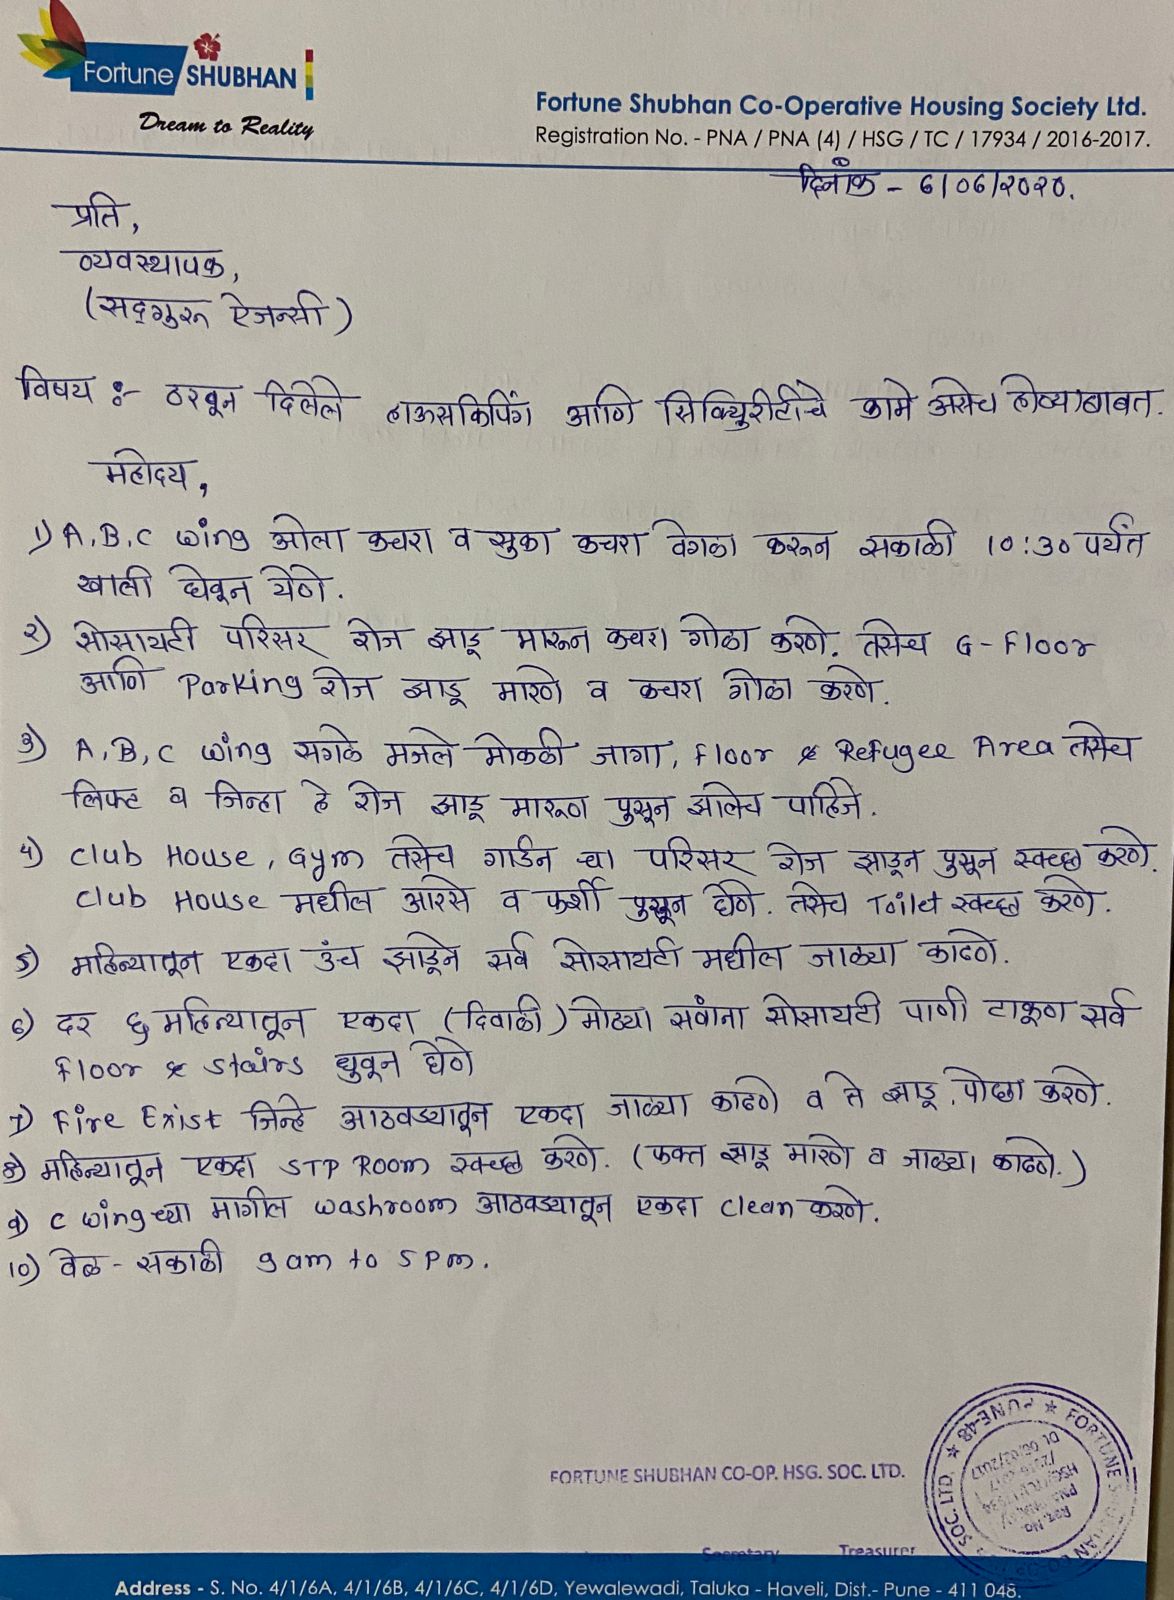 Fortune SHUBHAN
Dream to Reality
Fortune Shubhan Co-Operative Housing Society Ltd.
Registration No. - PNA / PNA (4) / HSG / TC / 17934 / 2016-2017.
दिनांक - 6/06/२०२०.
प्रति,
व्यवस्थापक,
(सद्गुरू ऐजन्सी)
विषय :- ठरवून दिलेले हाऊसकिपिंग आणि सिक्युिरीटीचे कामे असेच होण्याबाबत.
महोदय,
1) A, B, C wing ओला कचरा व सुका कचरा वेगळा करून सकाळी 10:30 पर्यंत
खाली घेवून येणे.
२) सोसायटी परिसर रोज झाडू मारून कचरा गोळा करणे. तसेच G-Floor
आणि Parking रोज झाडू मारणे व कचरा गोळा करणे.
3) A, B, C wing सगळे मजले मोकळी जागा, Floor & Refugee Area तसेच
लिफ्ट व जिन्हा हे रोज झाडू मारूण पुसून झालेच पाहिजे.
4) Club House, Gym तसेच गार्डन चा परिसर रोज झाडून पुसून स्वच्छ करणे.
Club House मधील आरसे व फर्शी पुसून घेणे. तसेच Toilet स्वच्छ करणे.
5) महिन्यातून एकदा उंच झाडूने सर्व सोसायटी मधील जाळ्या काढणे.
6) दर ६ महिन्यातून एकदा (दिवाळी) मोठ्या सणांना सोसायटी पाणी टाकूण सर्व
Floor & Stairs धुवून घेणे
7) Fire Exist जिन्हे आठवड्यातून एकदा जाळ्या काढणे व ते झाडू, पोछा करणे.
8) महिन्यातून एकदा STP Room स्वच्छ करणे. (फक्त झाडू मारणे व जाळ्या काढणे.)
9) C wing च्या मागील washroom आठवड्यातून एकदा Clean करणे.
10) वेळ - सकाळी 9 am to 5 Pm.
FORTUNE SHUBHAN CO-OP. HSG. SOC. LTD.
Secretary Treasurer
Address - S. No. 4/1/6A, 4/1/6B, 4/1/6C, 4/1/6D, Yewalewadi, Taluka - Haveli, Dist.- Pune - 411 048.